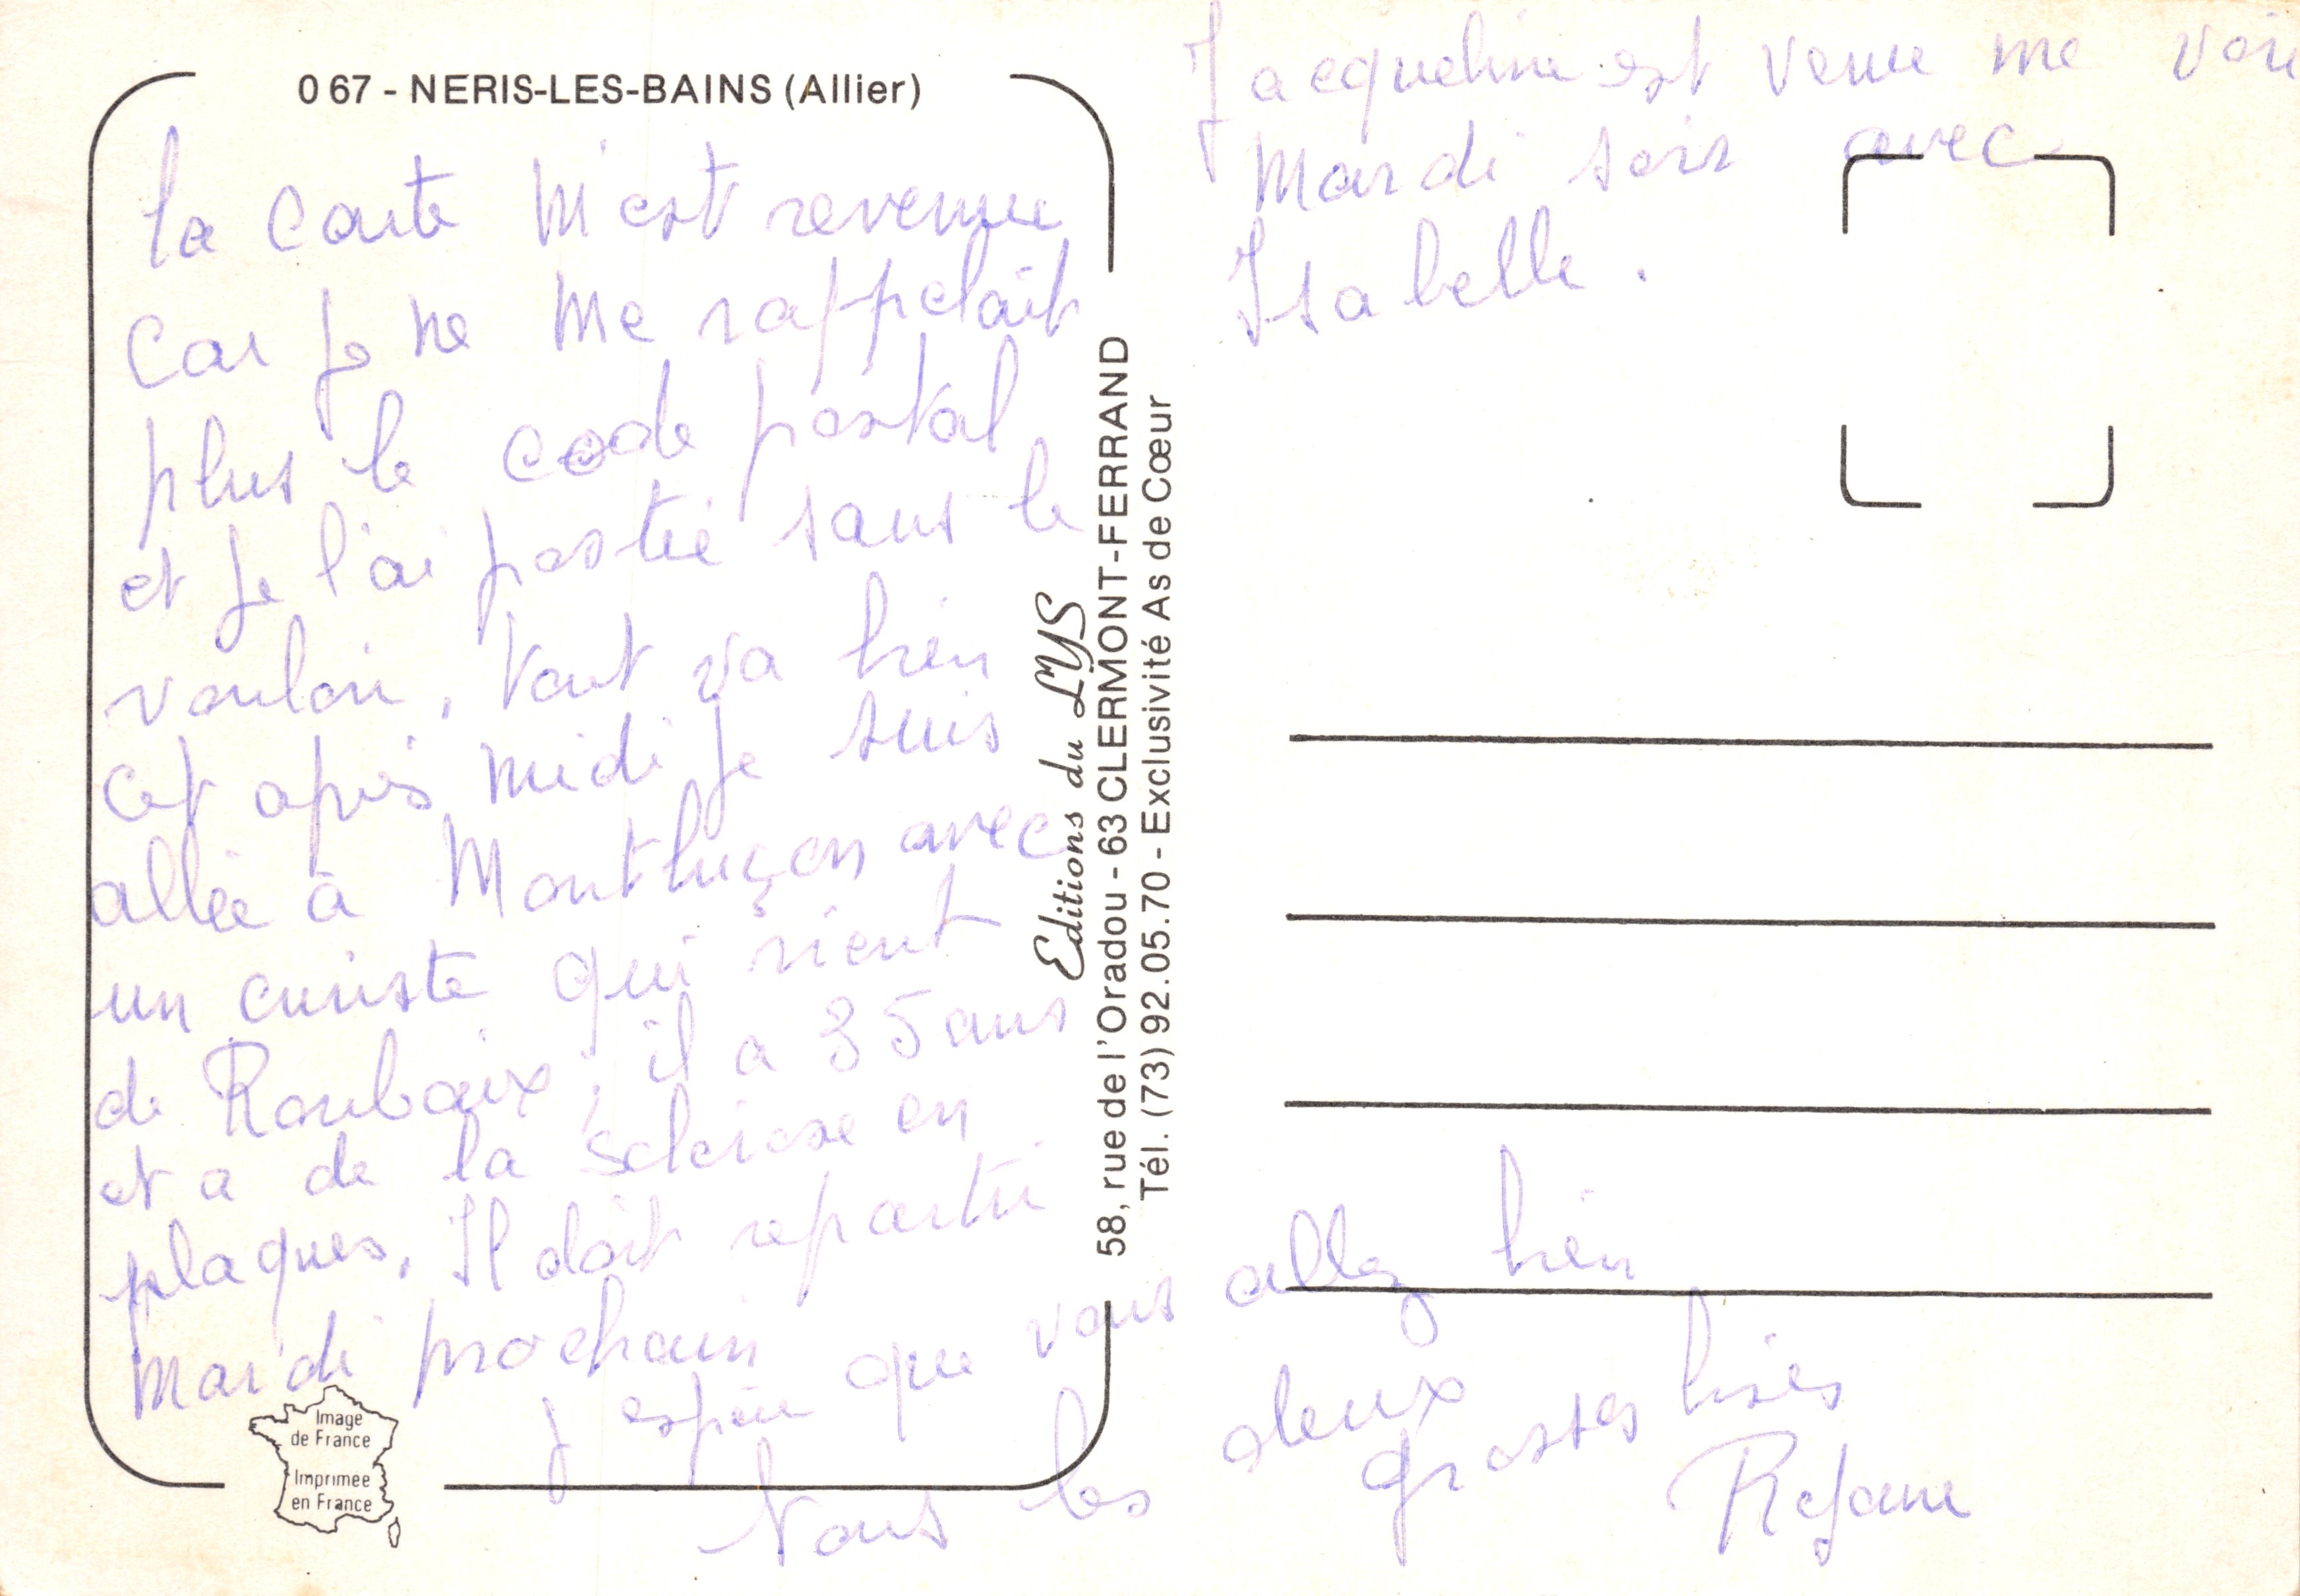 067 - NERIS-LES-BAINS (Allier)
la carte m'est revenue
car je ne me rappelait
plus le code postal
et je l'ai postée sans le
vouloir, tout va bien
cet après midi je suis
allée à Montluçon avec
un curiste qui vient
de Roubaix, il a 35 ans
et a de la sclerose en
plaques. Il doit repartir
mardi prochain
j'espère que vous allez bien
tous les deux
grosses bises
Rejane
Jacqueline est venue me voir
mardi soir avec
Isabelle.
Editions du LYS
58, rue de l'Oradou - 63 CLERMONT-FERRAND
Tél. (73) 92.05.70 - Exclusivité As de Cœur
Image
de France
Imprimée
en France